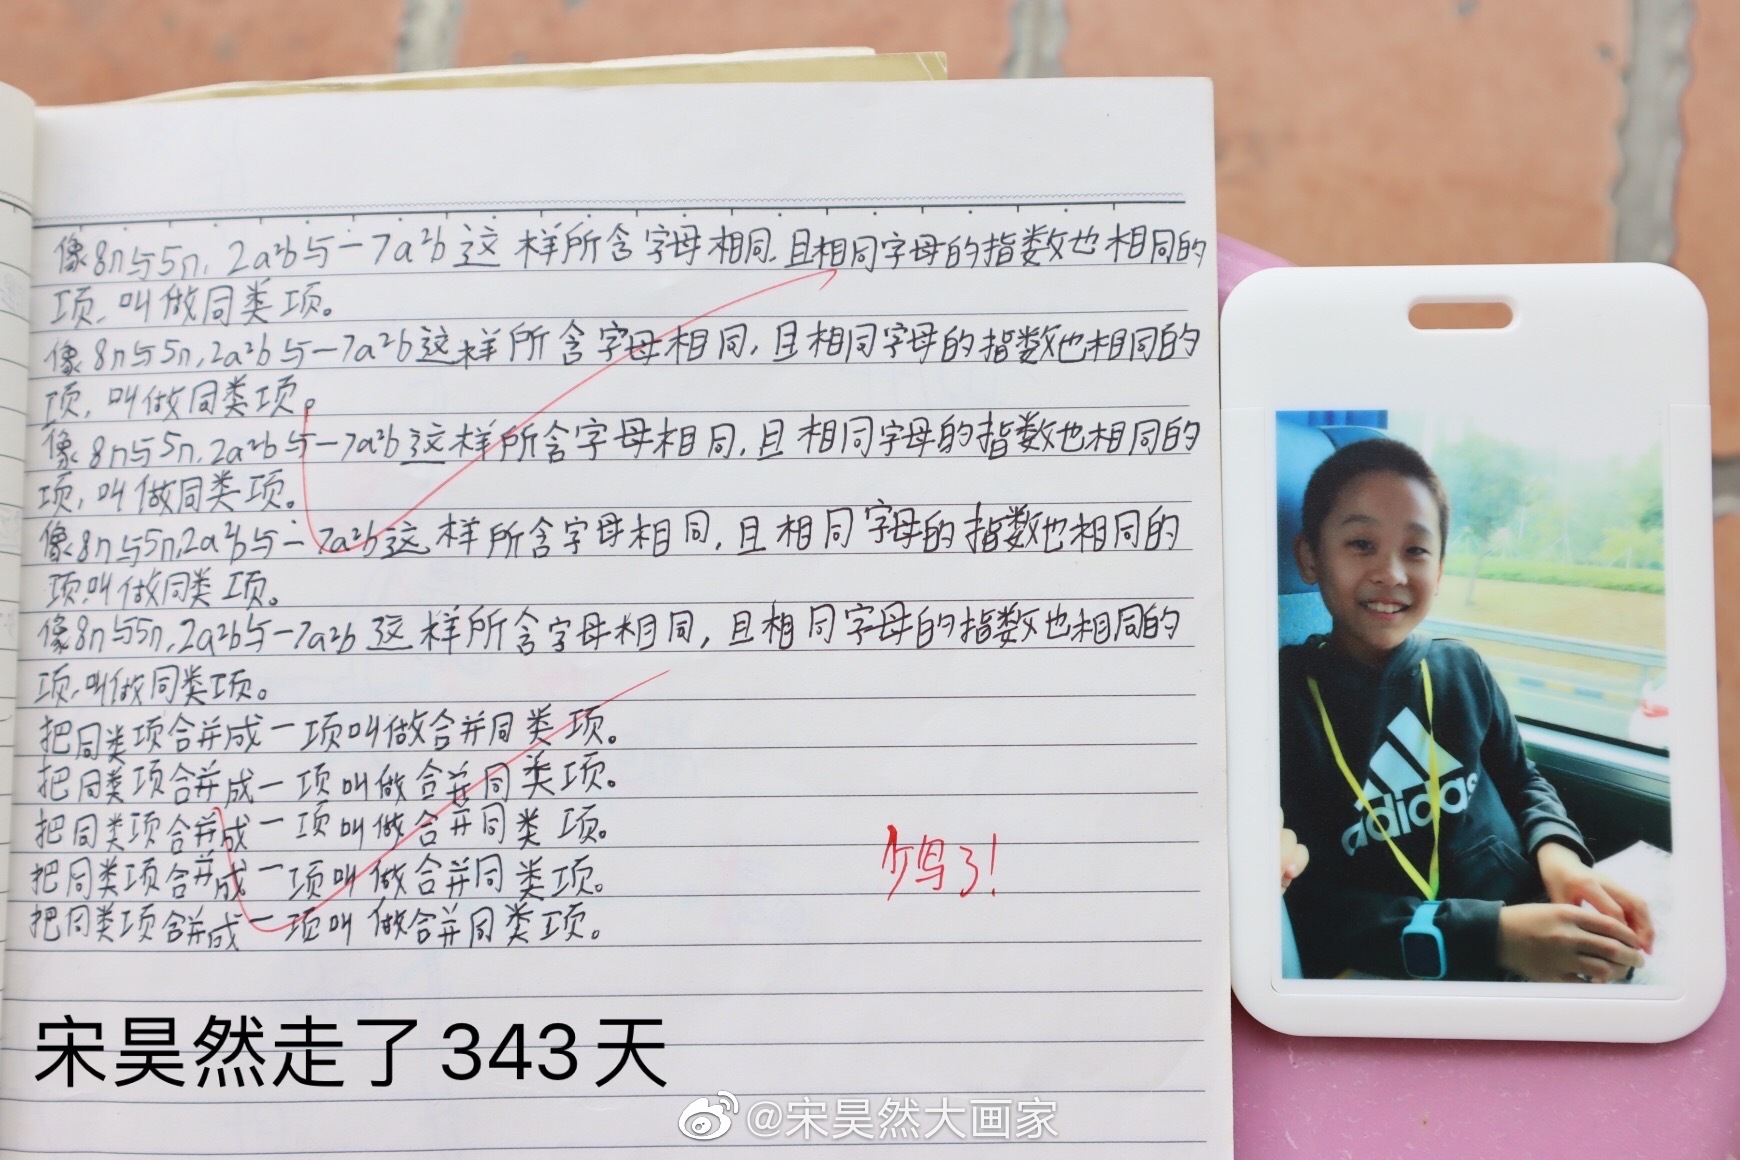 像8n与5n，2a²b与-7a²b这样所含字母相同，且相同字母的指数也相同的
项，叫做同类项。
像8n与5n，2a²b与-7a²b这样所含字母相同，且相同字母的指数也相同的
项，叫做同类项。
像8n与5n，2a²b与-7a²b这样所含字母相同，且相同字母的指数也相同的
项，叫做同类项。
像8n与5n，2a²b与-7a²b这样所含字母相同，且相同字母的指数也相同的
项，叫做同类项。
像8n与5n，2a²b与-7a²b这样所含字母相同，且相同字母的指数也相同的
项，叫做同类项。
把同类项合并成一项叫做合并同类项。
把同类项合并成一项叫做合并同类项。
把同类项合并成一项叫做合并同类项。
把同类项合并成一项叫做合并同类项。
把同类项合并成一项叫做合并同类项。
了！
宋昊然走了343天
@宋昊然大画家
adidas